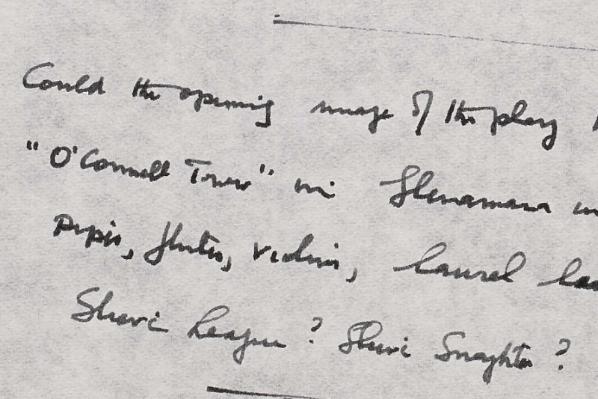 Could the opening image of the play
"O'Connell Tower" in
Pipes, flutes, violins, laurel
Slieve League? Slieve Snaghta?